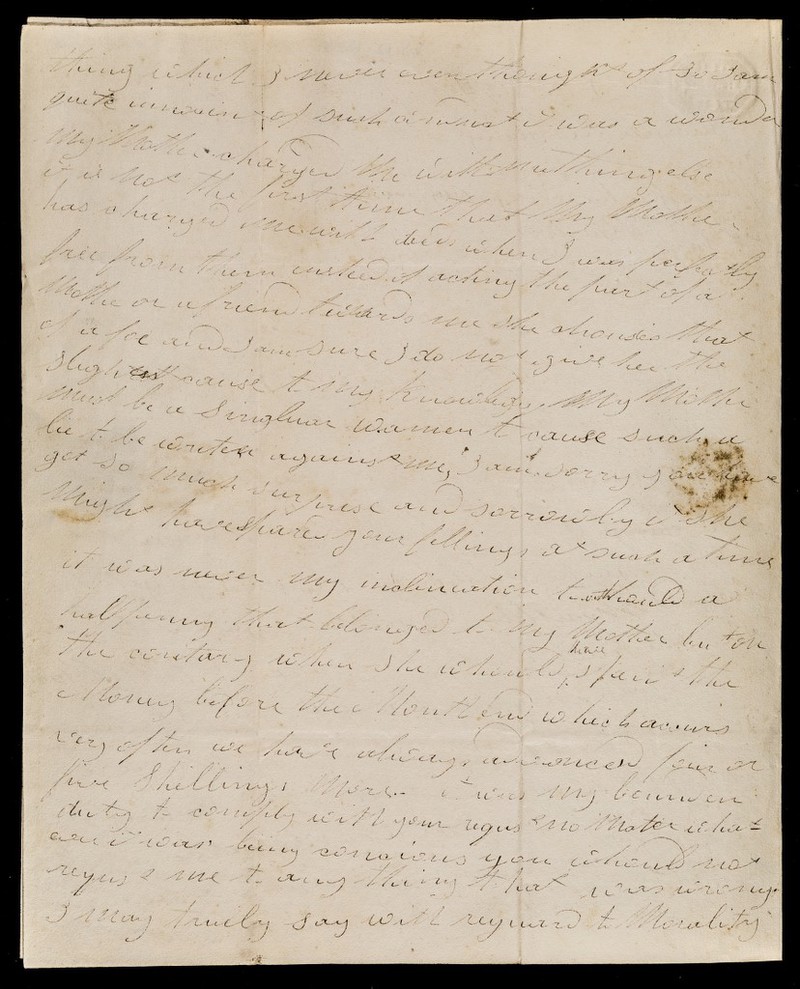 thing which I never even thought of So I am
quite innocent of such a
My Mother charged me with nuthing else
it is Not the first time that My Mother
has charged me with when I was perfectly
free from them insted of acting the part of a
Mother or a friend towards me she chouses that
of a foe and I am sure I do not give her the
Slightest cause to my Knowledge. My Mother
must be a Singluar Women to cause such a
lie to be writen against me, I am sorry you have
got so much surprise and sorrow by it she
Might have spared your fellings at such a time
it was never my inclination to a
halfpenny that belonged to My Mother but on
the contarey when she whould have Spent the
Money before the Month end which accurs
very often we have always advanced four or
five Shillings More. it was my bounden
duty to comply with your requst no Mater what
it was being concious you whould not
requst me to any thing that was wrong.
I may truely say with reguard to Morality